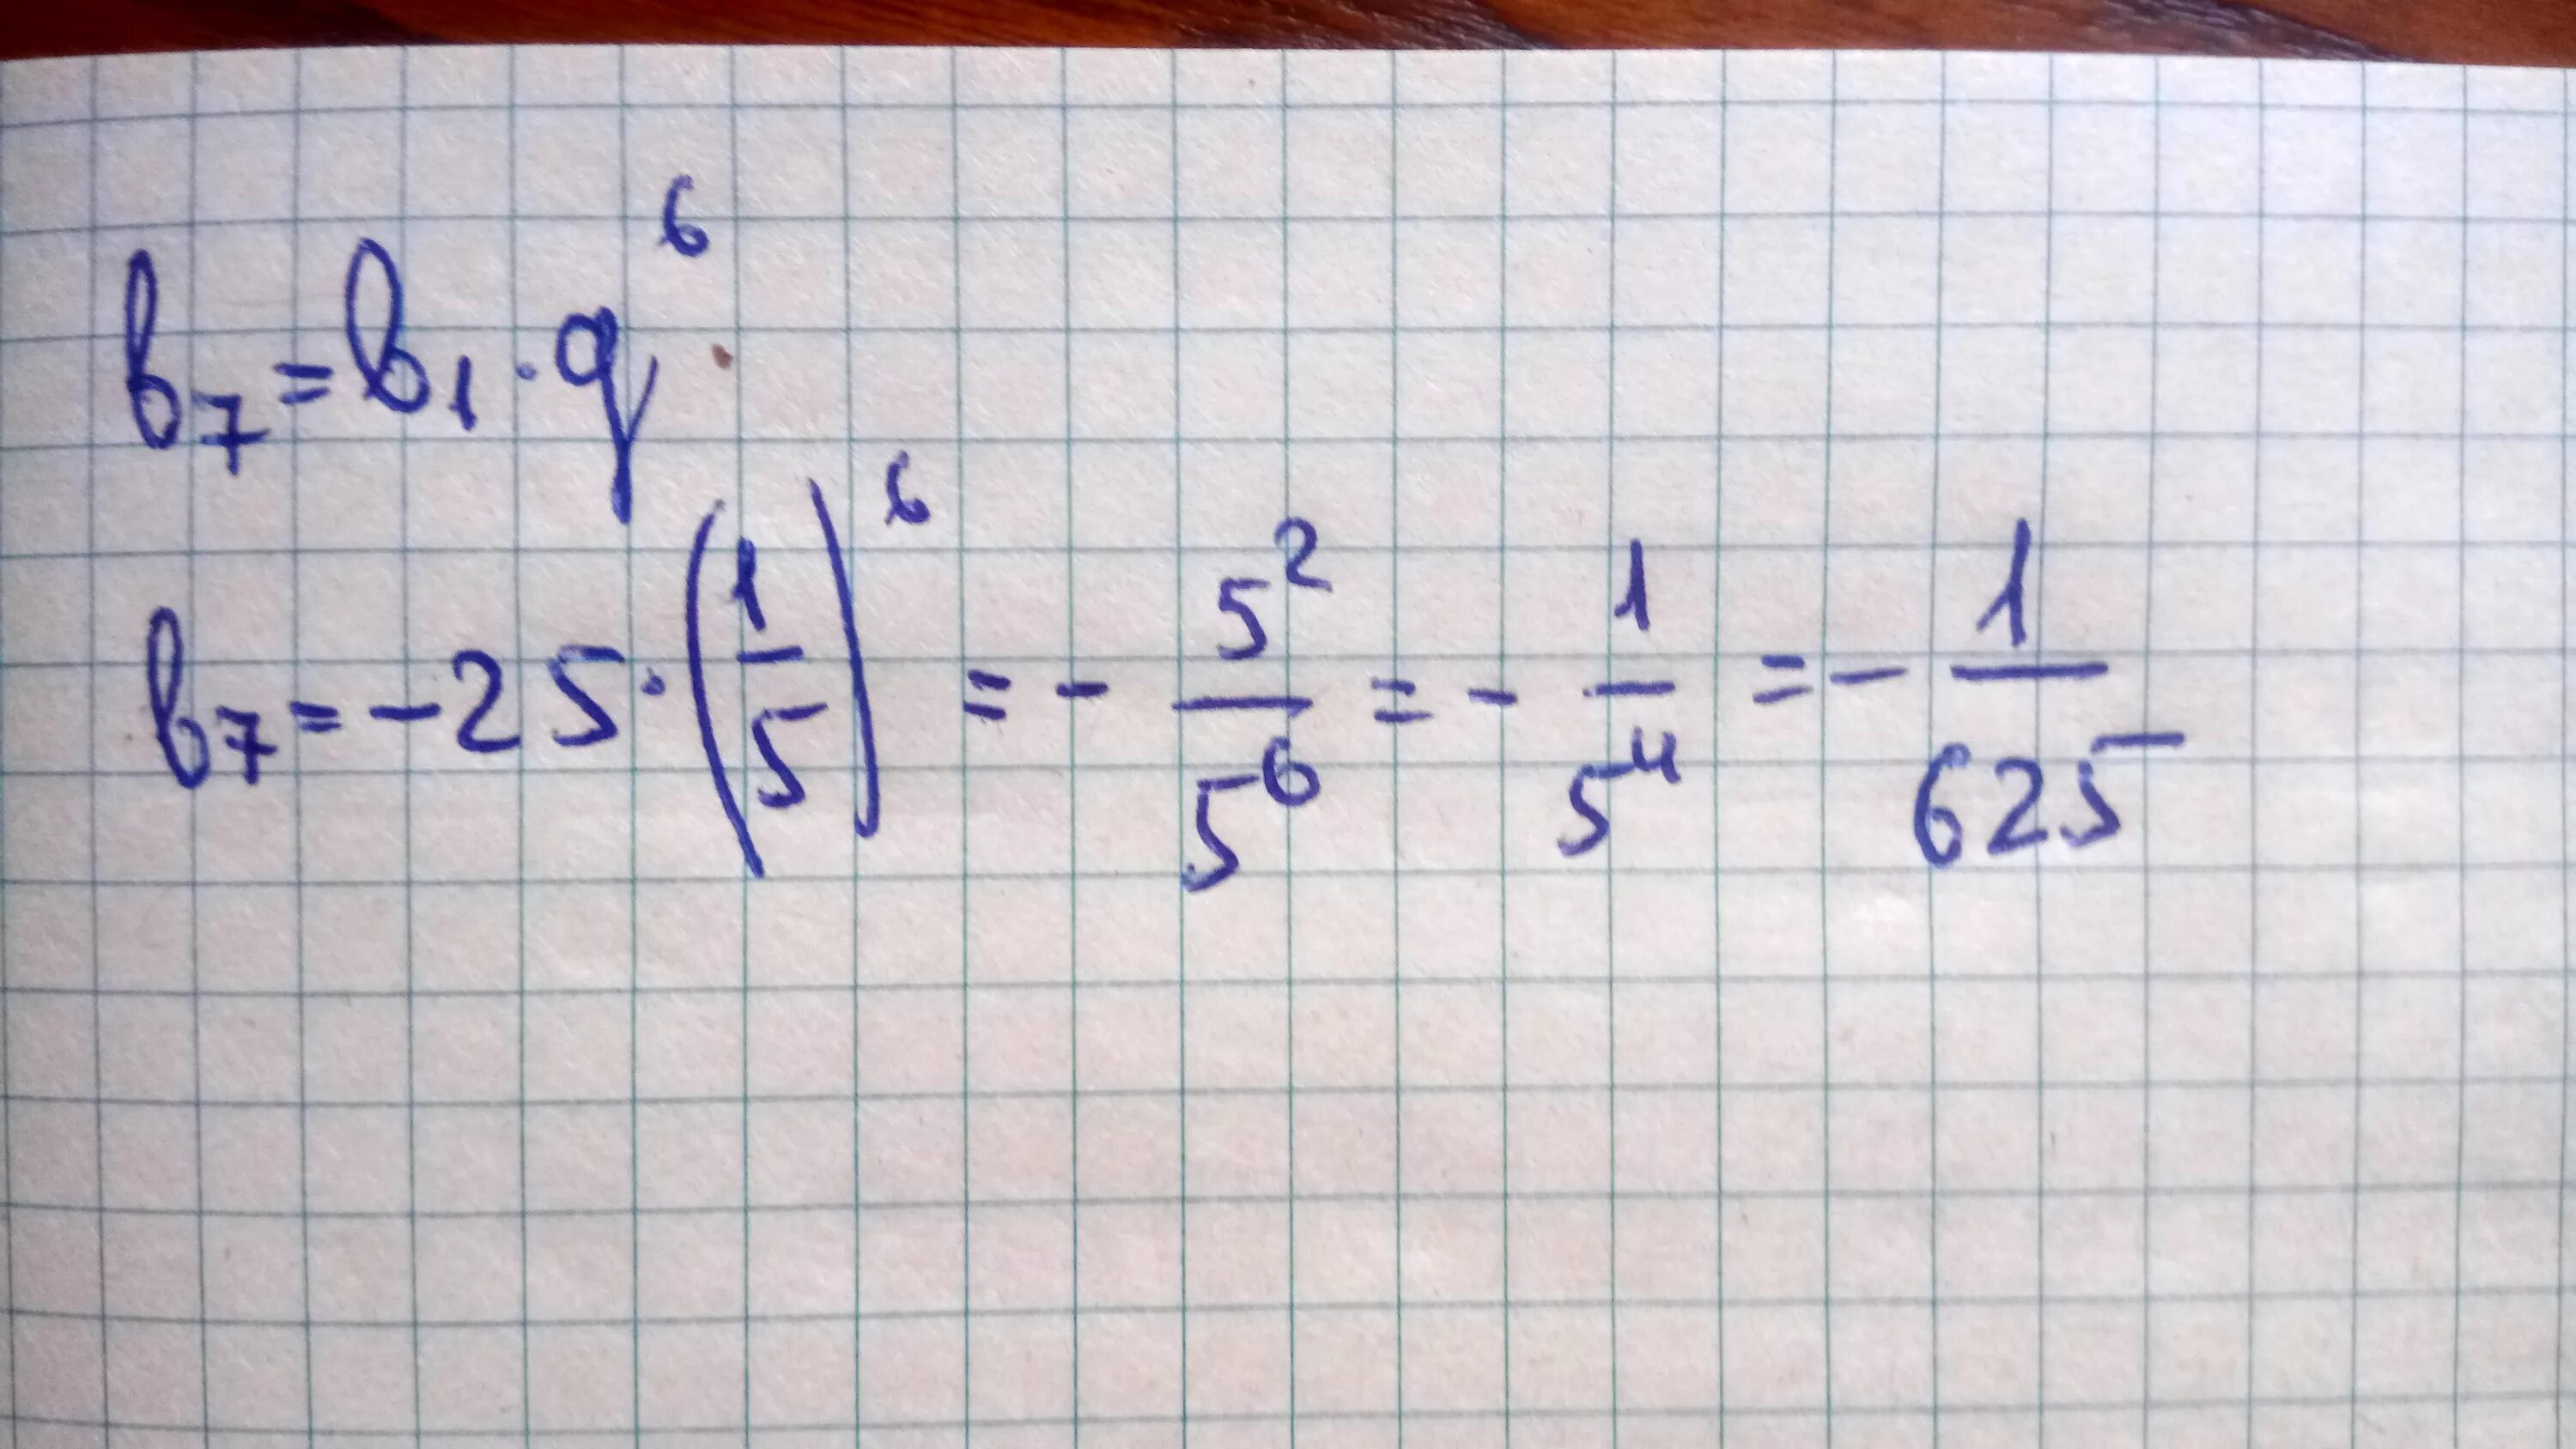 b₇ = b₁ · q⁶
b₇ = -25 · (1/5)⁶ = - 5²/5⁶ = - 1/5⁴ = - 1/625